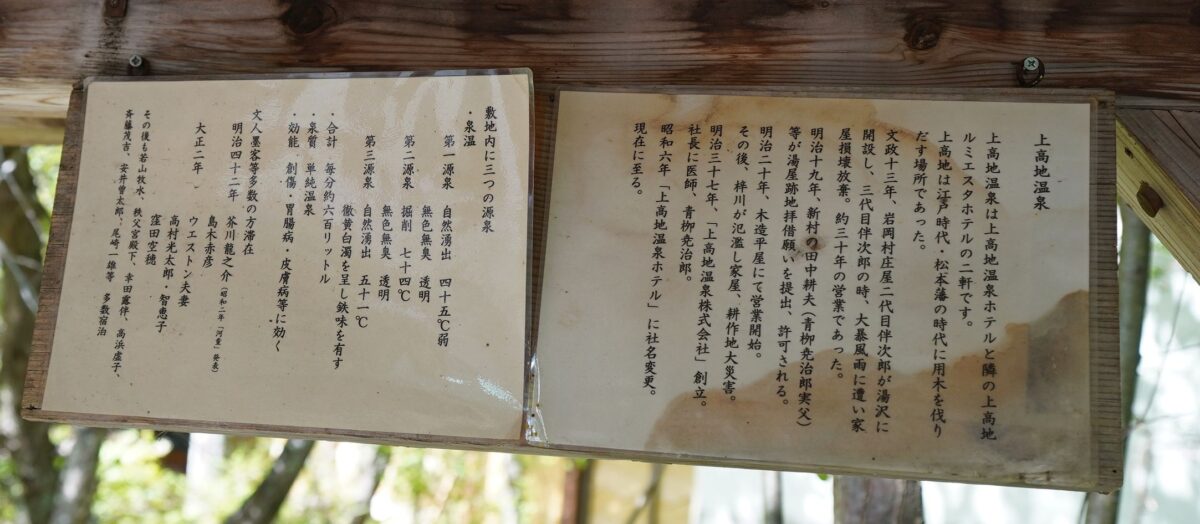 上高地温泉
上高地温泉は上高地温泉ホテルと隣の上高地
ルミエスタホテルの二軒です。
上高地は江戸時代・松本藩の時代に用木を伐り
だす場所であった。
文政十三年、岩岡村庄屋二代目伴次郎が湯沢に
開設し、三代目伴次郎の時、大暴風雨に遭い家
屋損壊放棄。約三十年の営業であった。
明治十九年、新村の田中耕夫（青柳尭治郎実父）
等が湯屋跡地拝借願いを提出、許可される。
明治二十年、木造平屋にて営業開始。
その後、梓川が氾濫し家屋、耕作地大災害。
明治三十七年、「上高地温泉株式会社」創立。
社長に医師、青柳尭治郎。
昭和六年「上高地温泉ホテル」に社名変更。
現在に至る。
敷地内に三つの源泉
・泉温
第一源泉 自然湧出 四十五℃弱
無色無臭 透明
第二源泉 掘削 七十四℃
無色無臭 透明
第三源泉 自然湧出 五十一℃
微黄白濁を呈し鉄味を有す
・合計 毎分約六百リットル
・泉質 単純温泉
・効能 創傷・胃腸病・皮膚病等に効く
文人墨客等多数の方滞在
明治四十二年 芥川龍之介（昭和二年「河童」発表）
島木赤彦
ウエストン夫妻
大正二年 高村光太郎・智恵子
窪田空穂
その後も若山牧水、秩父宮殿下、幸田露伴、高浜虚子、
斉藤茂吉、安井曽太郎、尾崎一雄等 多数宿泊